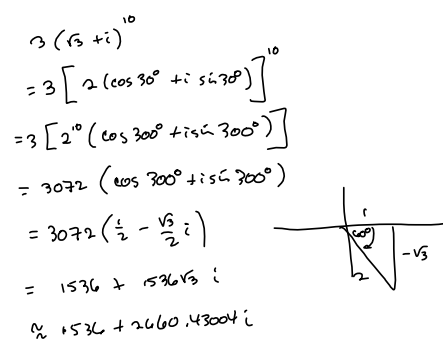 3 (√3 + i)^10
= 3 [2 (cos 30° + i sin 30°)]^10
= 3 [2^10 (cos 300° + i sin 300°)]
= 3072 (cos 300° + i sin 300°)
= 3072 (1/2 - √3/2 i)
= 1536 + 1536√3 i
≈ 1536 + 2660.43004 i
1
60°
-√3
2